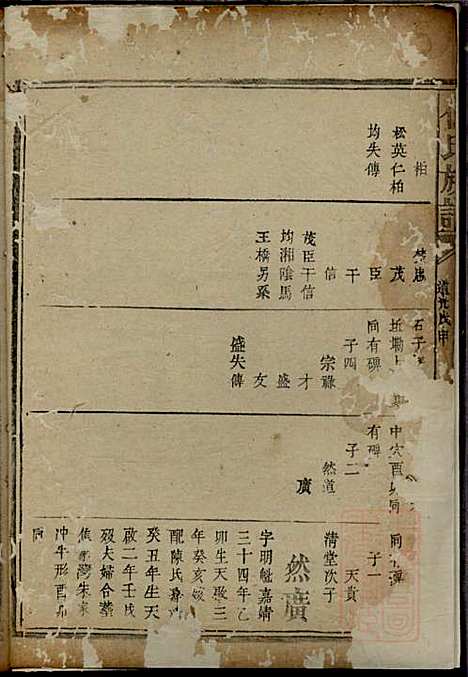 氏族譜
道光戊申
柏
松英仁柏
均失傳
茂
臣
干
信
茂臣干信
均湘陰馬
王橋另系
石子
坵墈上
同有碑
子四
宗祿
才
盛
友
盛失傳
中穴酉
有碑
子二
然道
廣
同
子一
天貴
清堂次子
然廣
字明魁嘉靖
三十四年乙
卯生天啟三
年癸亥歿
配陳氏
癸丑年生天
啟二年壬戌
歿夫婦合塟
灣朱家
冲牛形酉卯
向